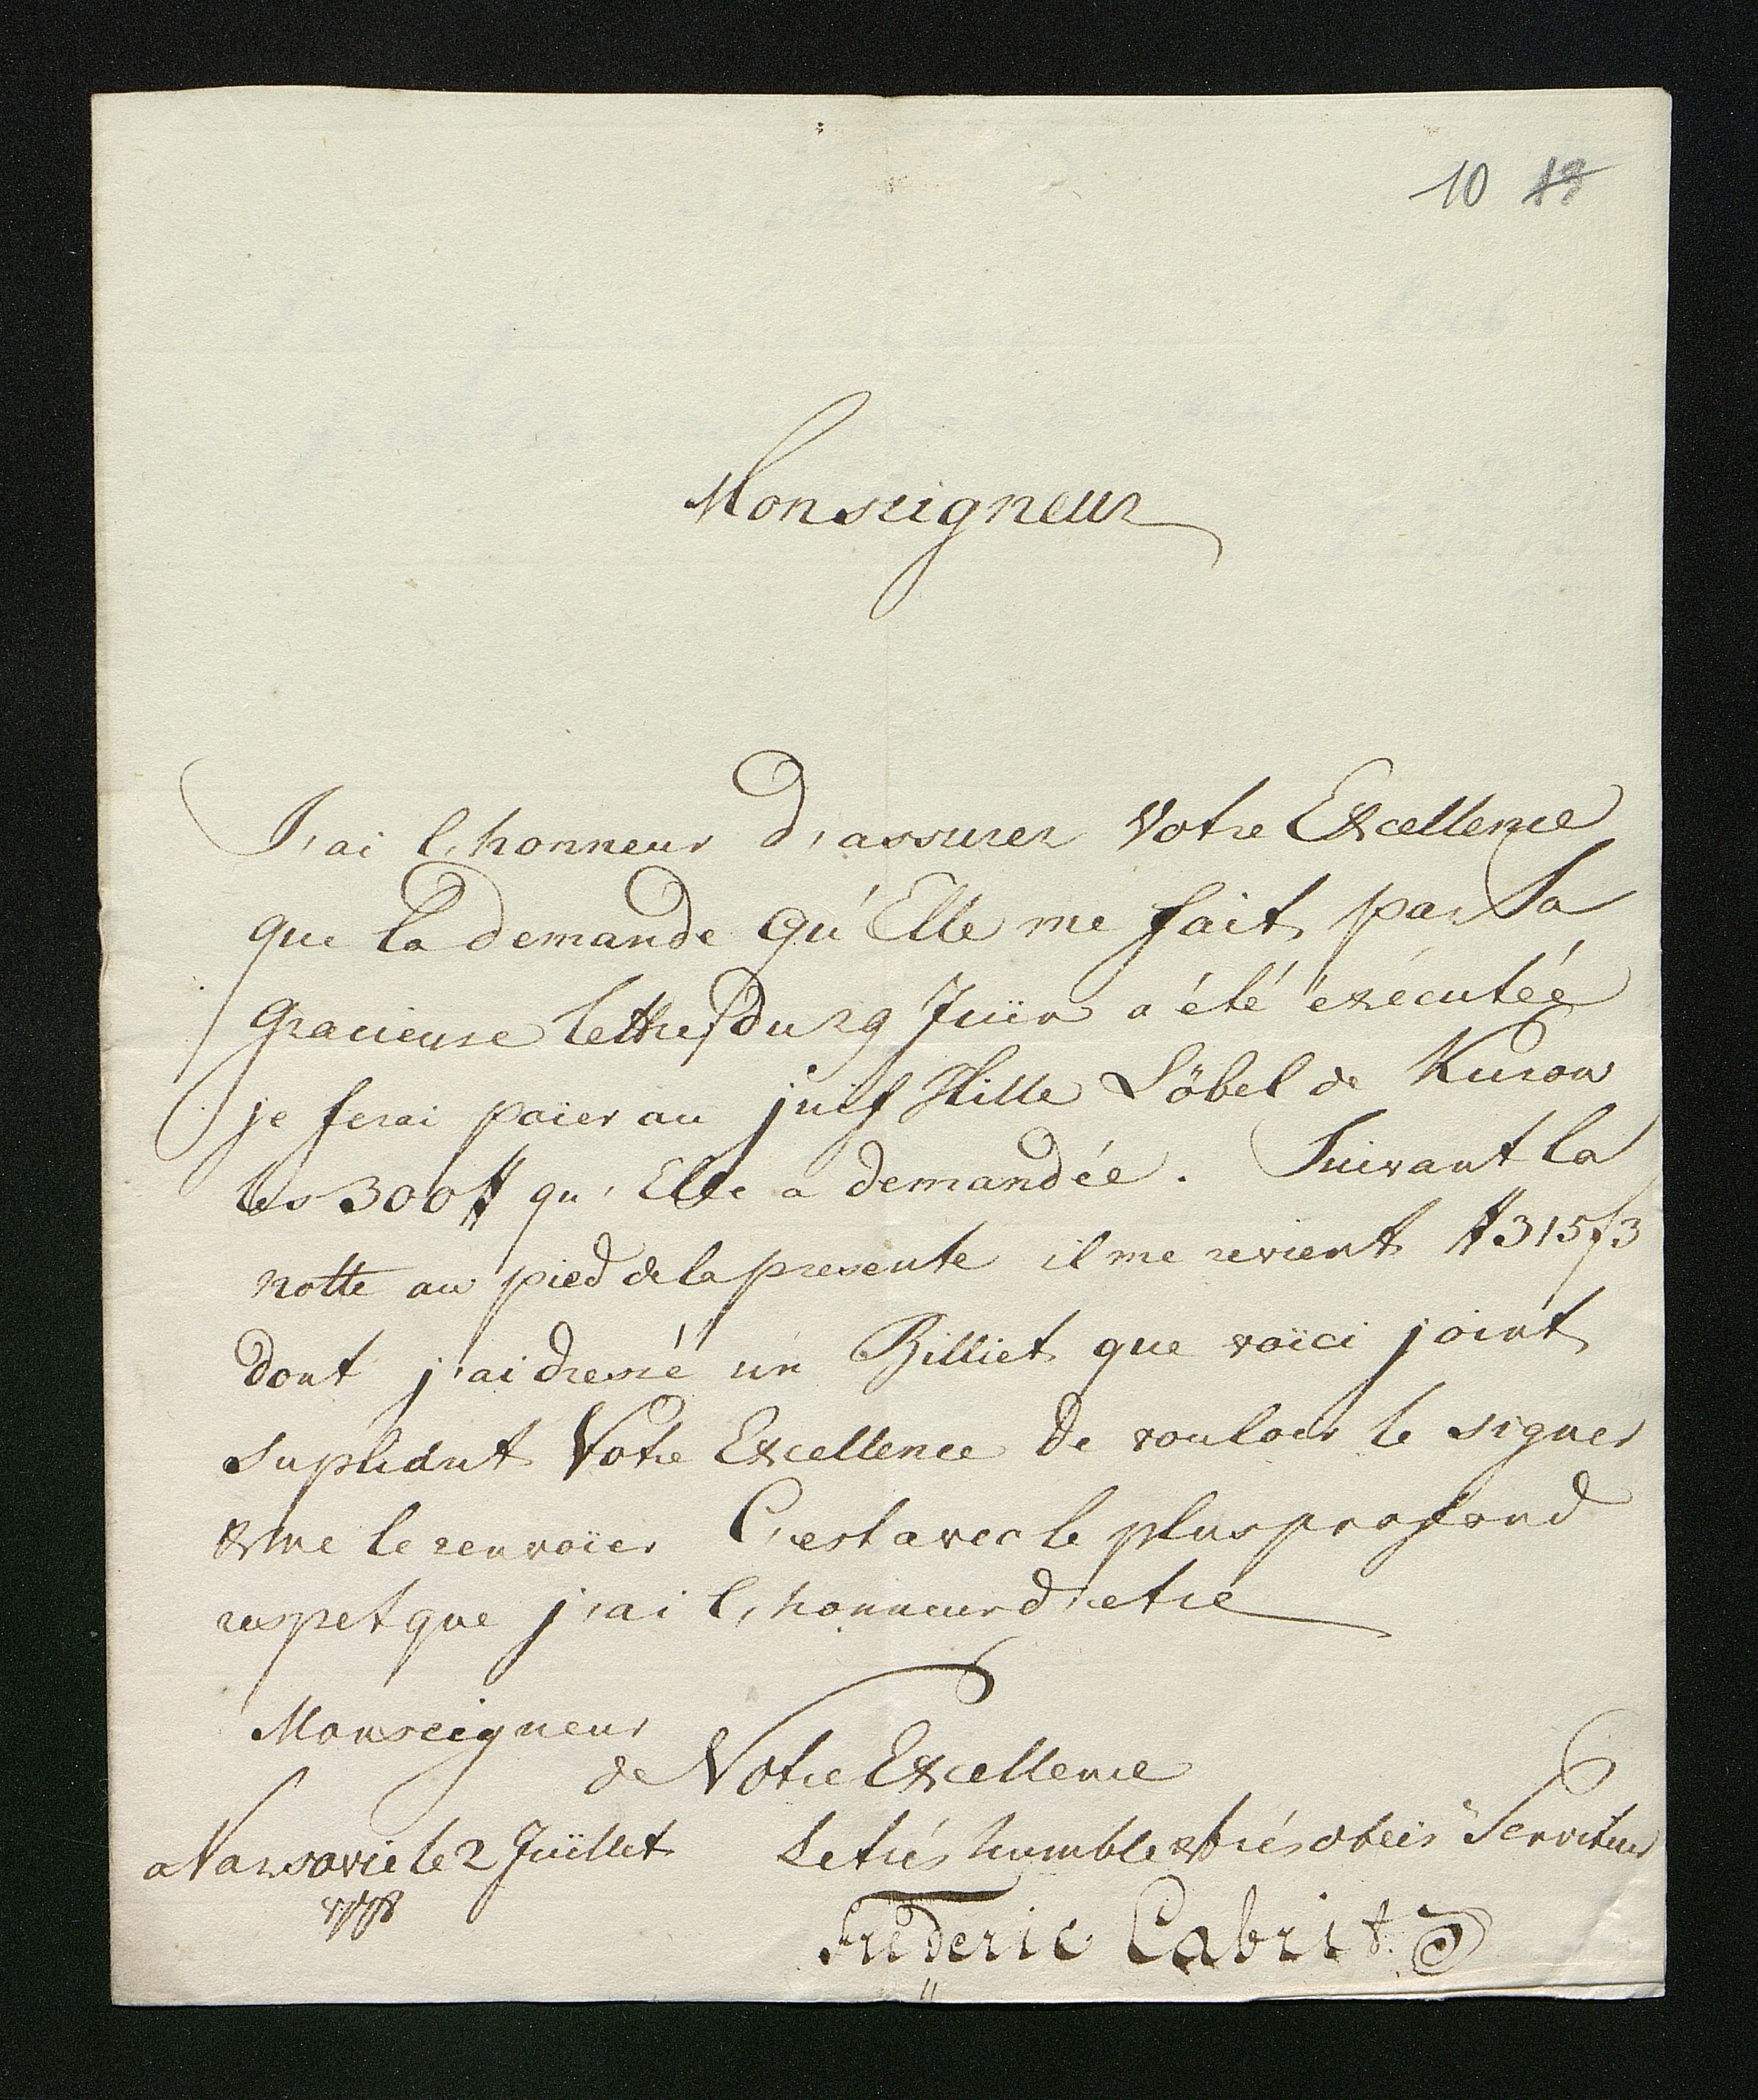 10 13
Monseigneur
J'ai l'honneur d'assurer Votre Excellence
que la demande qu'Elle me fait par Sa
Gracieuse lettre du 29 Juïn a été éxécutée
je ferai païer au juif Hille Löbel de Kurow
les 300 # qu'Elle a demandée. Suivant la
notte au pied de la presente il me revient # 315 f 3
dont j'ai dressé un Billiet que voïci joint
supliant Votre Excellence de vouloir le signer
& me le renvoïer C'est avec le plus profond
respet que j'ai l'honneur d'etre
Monseigneur
de Votre Excellence
a Varsovie le 2 Juïllet Le trés humble & trés obeïs Serviteur
Fréderic Cabrit